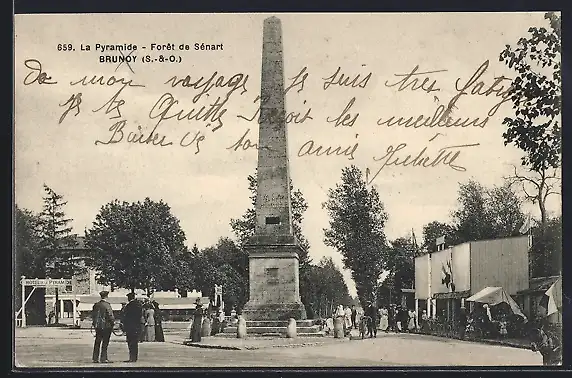 659. La Pyramide - Forêt de Sénart
BRUNOY (S.-&-O.)
da mon voyage Je suis tres fatigu
Je te Quitte Reçoit les meilleurs
Baiser de ton amie Juliette
HOTEL DE LA PYRAMIDE